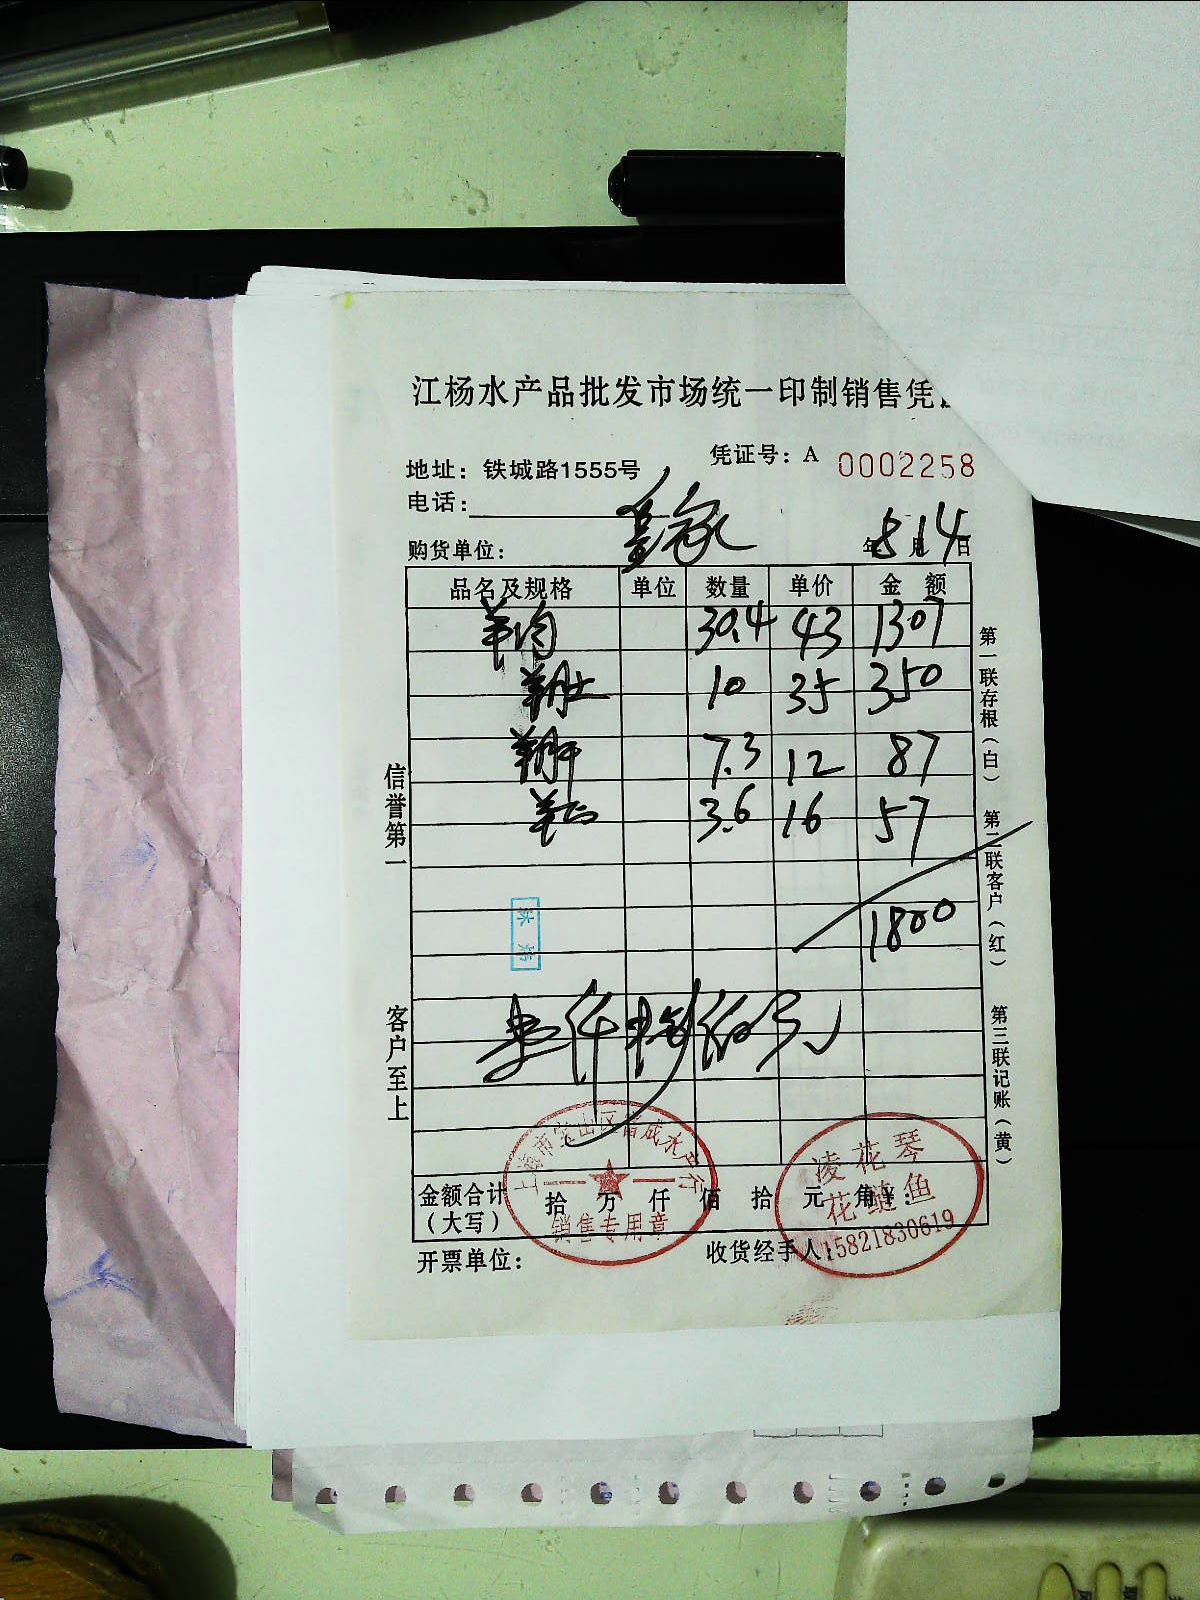 江杨水产品批发市场统一印制销售凭
地址：铁城路1555号 凭证号：A 0002258
电话：
购货单位： 年8月14日
品名及规格 单位 数量 单价 金额
羊肉 30.4 43 1307
羊肚 10 35 350
羊肝 7.3 12 87
羊 3.6 16 57
1800
壹仟捌佰元
金额合计（大写） 拾 万 仟 佰 拾 元 角 ¥：
开票单位： 收货经手人：
信誉第一 客户至上
第一联存根（白） 第二联客户（红） 第三联记账（黄）
上海市宝山区 成水产行
销售专用章
凌花琴
花鲢鱼
15821830619